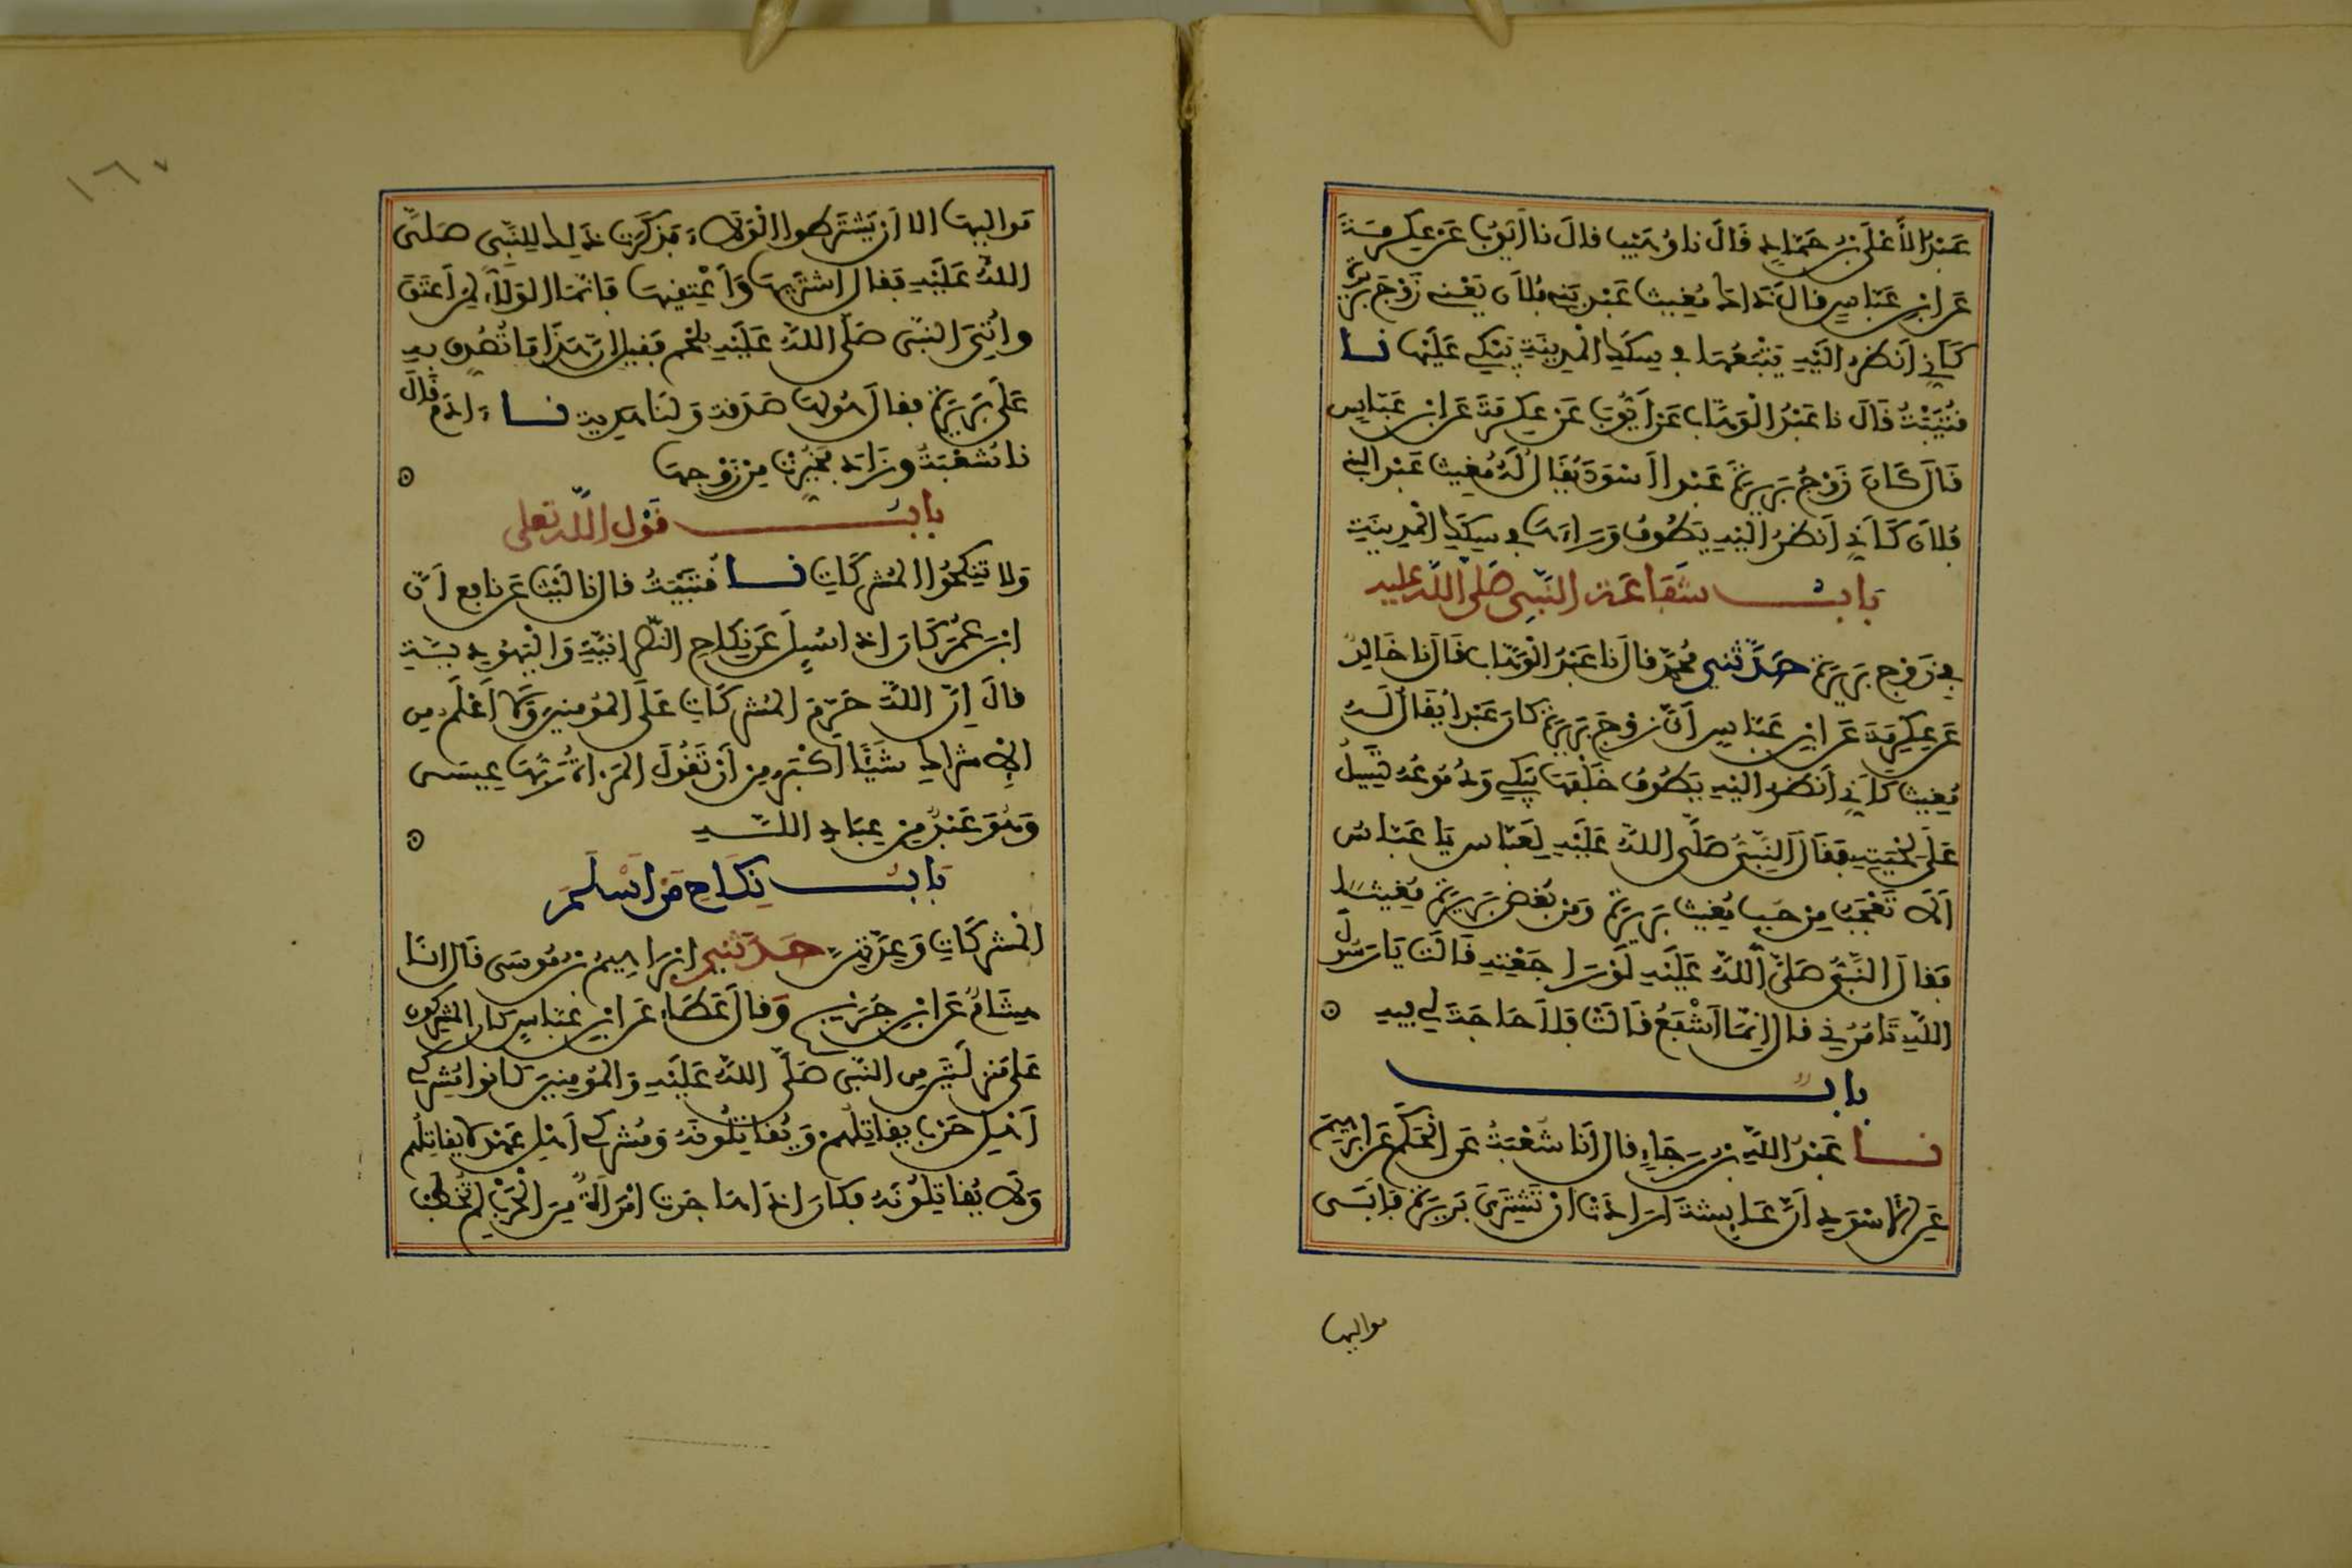 عَبْدُ الْأَعْلَى بْنُ حَمَّادٍ قَالَ نا وُهَيْب قال نا أَيُّوبُ عَنْ عِكْرِمَةَ
عَن ابْنِ عَبَّاسٍ قال ذَاكَ مُغِيثٌ عَبْدُ بَنِي فُلَانٍ يَعْنِي زَوْجَ بَرِيرَةَ
كَأَنِّي أَنْظُرُ إِلَيْهِ يَتْبَعُهَا فِي سِكَكِ الْمَدِينَةِ يَبْكِي عَلَيْهَا نــا
قُتَيْبَةُ قَالَ نا عَبْدُ الْوَهَّابِ عَنْ أَيُّوبَ عَنْ عِكْرِمَةَ عَن ابْنِ عَبَّاسٍ
قَالَ كَانَ زَوْجُ بَرِيرَةَ عَبْدا أَسْوَدَ يُقَالُ لَهُ مُغِيث عَبْد البني
فُلَان كَأَنِّي أَنْظُرُ إِلَيْهِ يَطُوفُ وَرَاءَهَا فِي سِكَكِ الْمَدِينَةِ
بَابُ شَفَاعَة النَّبِي صَلَّى اللَّه عليه
فِي زَوْجِ بَرِيرَةَ حَدَّثَنِي مُحَمَّدٌ قال نا عَبْدُ الْوَهَّابِ قَالَ نا خَالِدٌ
عَن عِكْرِمَةَ عَن ابْنِ عَبَّاسٍ أَنَّ زَوْجَ بَرِيرَةَ كَانَ عَبْدا يُقَالُ لَهُ
مُغِيث كَأَنِّي أَنْظُرُ إِلَيْهِ يَطُوفُ خَلْفَهَا يَبْكِي وَدُمُوعُهُ تَسِيلُ
عَلَى لِحْيَتِهِ فَقَالَ النَّبِيُّ صَلَّى اللَّهُ عَلَيْهِ لِعَبَّاس يَا عَبَّاسُ
أَلَا تَعْجَبُ مِنْ حُبِّ مُغِيث بَرِيرَةَ وَمِن بُغْضِ بَرِيرَةَ مُغِيثا
فَقَالَ النَّبِيُّ صَلَّى اللَّهُ عَلَيْهِ لَوْ رَاجَعْتِهِ قَالَت يَا رَسُول
اللَّهِ تَأْمُرُنِي قال إِنَّمَا أَشْفَعُ قَالَتْ فَلَا حَاجَةَ لِي فِيهِ
بابٌ
نــا عَبْدُ اللَّهِ بْنُ رَجَاءٍ قال أَنا شُعْبَةُ عَن الْحَكَمِ عَن إِبْرَاهِيمَ
عَن الْأَسْوَدِ أَنَّ عَائِشَةَ أَرَادَتْ أَنْ تَشْتَرِيَ بَرِيرَةَ فَأَبَى
مواليها
١٦٧
مَوَالِيهَا إلا أَنْ يَشْتَرِطُوا الْوَلَاءَ فَذَكَرَتْ ذَلِكَ لِلنَّبِيِّ صَلَّى
اللَّهُ عَلَيْهِ فَقَالَ اشْتَرِيهَا وَأَعْتِقِيهَا فَإِنَّمَا الْوَلَاءُ لِمَنْ أَعْتَقَ
وأُتِيَ النَّبِيُّ صَلَّى اللَّهُ عَلَيْهِ بِلَحْمٍ فَقِيلَ إِنَّ هَذَا مَا تُصُدِّقَ بِهِ
عَلَى بَرِيرَةَ فَقَالَ هُوَ لَهَا صَدَقَة وَلَنَا هَدِية نــا ءَادَمُ قَالَ
نا شُعْبَةُ وزَادَ فخُيِّرَتْ مِنْ زَوْجِهَا
بابُ قَوْلِ اللَّه تعلى
وَلَا تَنْكِحُوا الْمُشْرِكَاتِ نــا قُتَيْبَةُ قال نا لَيْثٌ عَن نافِعٍ أَنَّ
ابْنَ عُمَرَ كَانَ إذَا سُئِلَ عَن نِكَاحِ النَّصْرَانِيَّةِ وَالْيَهُودِيَّةِ
قالَ إِنَّ اللَّهَ حَرَّمَ الْمُشْرِكَاتِ عَلَى الْمُؤْمِنِينَ وَلَا أَعْلَمُ مِن
الْإِشْرَاكِ شَيْئًا أَكْبَرَ مِنْ أَنْ تَقُولَ الْمَرْأَةُ رَبُّهَا عِيسَى
وَهُوَ عَبْدٌ مِنْ عِبَادِ اللَّهِ
بَابُ نِكَاحِ مَنْ أَسْلَمَ
الْمُشْرِكَاتِ وَعِدَّتِهِنَّ حَدَّثَنِي إِبْرَاهِيمُ بْنُ مُوسَى قَالَ أنا
هِشَامٌ عَن ابْنِ جُرَيْجٍ وَقالَ عَطَاءٌ عَن ابْنِ عَبَّاسٍ كَانَ الْمُشْرِكُونَ
عَلَى مَنْزِلَتَيْنِ مِن النَّبِيِّ صَلَّى اللَّهُ عَلَيْهِ وَالْمُؤْمِنِينَ كَانُوا مُشْرِكِي
أَهْلِ حَرْبٍ يقَاتِلُهُمْ وَيُقَاتِلُونَهُ وَمُشْرِكِي أَهْلِ عَهْدٍ لَا يُقَاتِلُهُم
وَلَا يُقَاتِلُونَهُ فكَانَ إِذَا هَاجَرَت امْرَأَةٌ مِنَ الْحَرْبِ لَمْ تُخْطَبْ